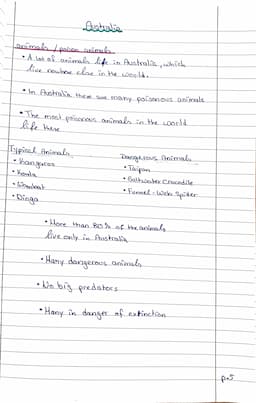 Australia
animals / poison animals
• A lot of animals life in Australia, which
live nowhere else in the world.
• In Australia there are many poisonous animals
• The most poisonous animals in the world
life there
Typical Animals
• Kangaroo
• Koala
• Wombat
• Dingo
Dangerous Animals
• Taipan
• Saltwater Crocodile
• Funnel-Web Spider
• More than 80% of the animals
live only in Australia
• Many dangerous animals
• No big predators
• Many in danger of extinction
p.5